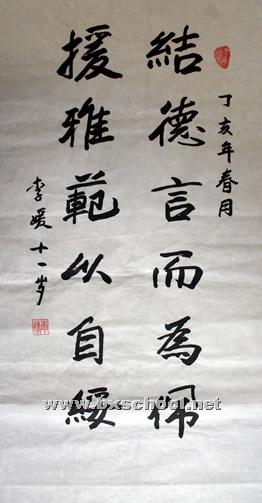 丁亥年春月
結德言而為佩
援雅範以自綏
李媛十一岁
www.bxschool.net